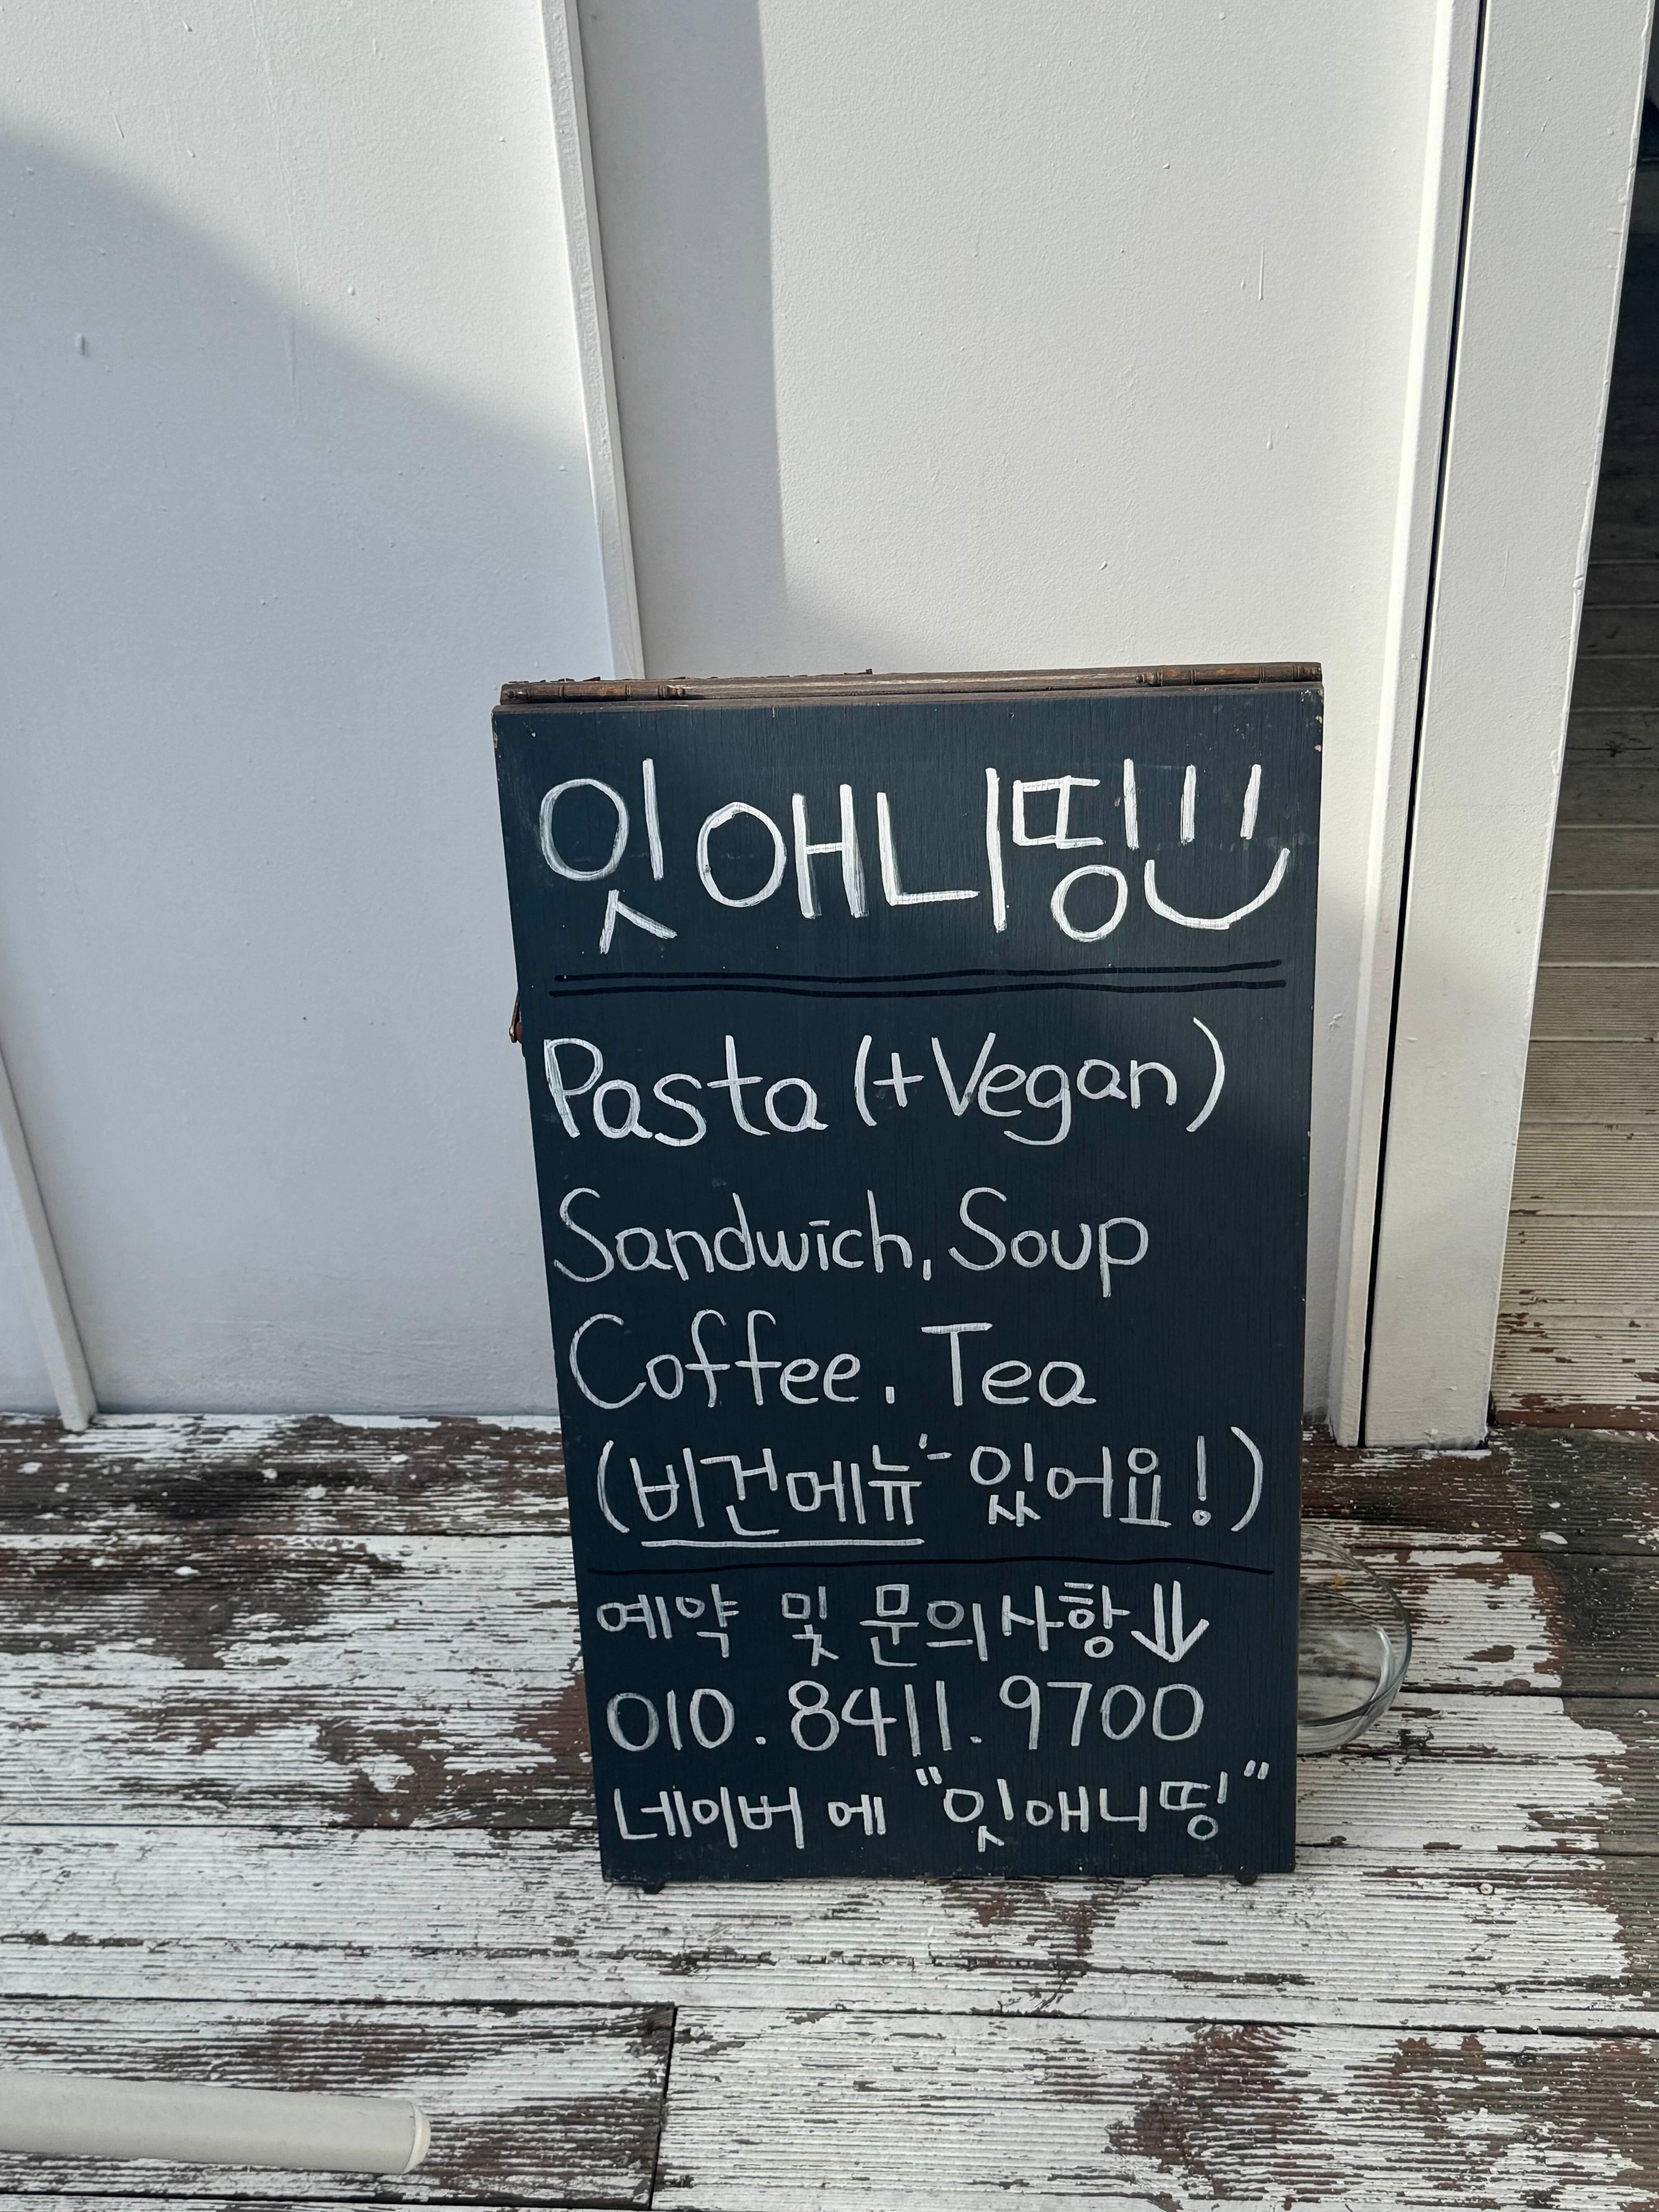 잇애니띵
Pasta (+Vegan)
Sandwich, Soup
Coffee. Tea
(비건메뉴 있어요!)
예약 및 문의사항⇓
010.8411.9700
네이버에 "잇애니띵"